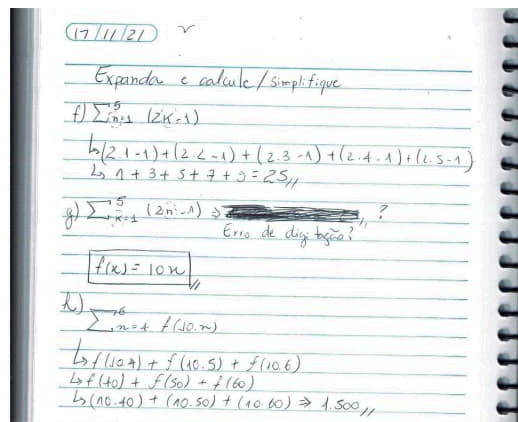 17/11/21
Expanda e calcule/simplifique
f) ∑⁵ₙ₌₁ (2K-1)
↳(2.1-1)+(2.2-1)+(2.3-1)+(2.4-1)+(2.5-1)
↳ 1+3+5+7+9=25//
g) ∑⁵ₖ₌₁ (2n-1) ⇒ ?
Erro de digitação?
f(x)=10x //
h)
∑⁶ₙ₌₄ f(10.n)
↳f(10.4) + f(10.5) + f(10.6)
↳f(40) + f(50) + f(60)
↳(10.40) + (10.50) + (10.60) ⇒ 1.500//